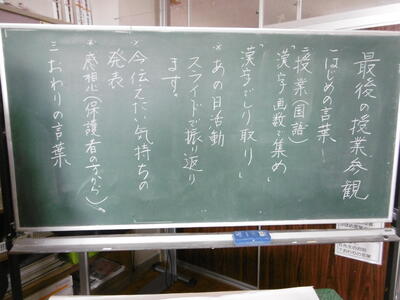 最後の授業参観
一はじめの言葉ー
二授業(国語)
漢字画数で集め
「漢字でしり取り」
※あの日活動
スライドで振り返り
ます。
※今伝えたい気持ちの
発表
※感想(保護者の方から)。
三おわりの言葉